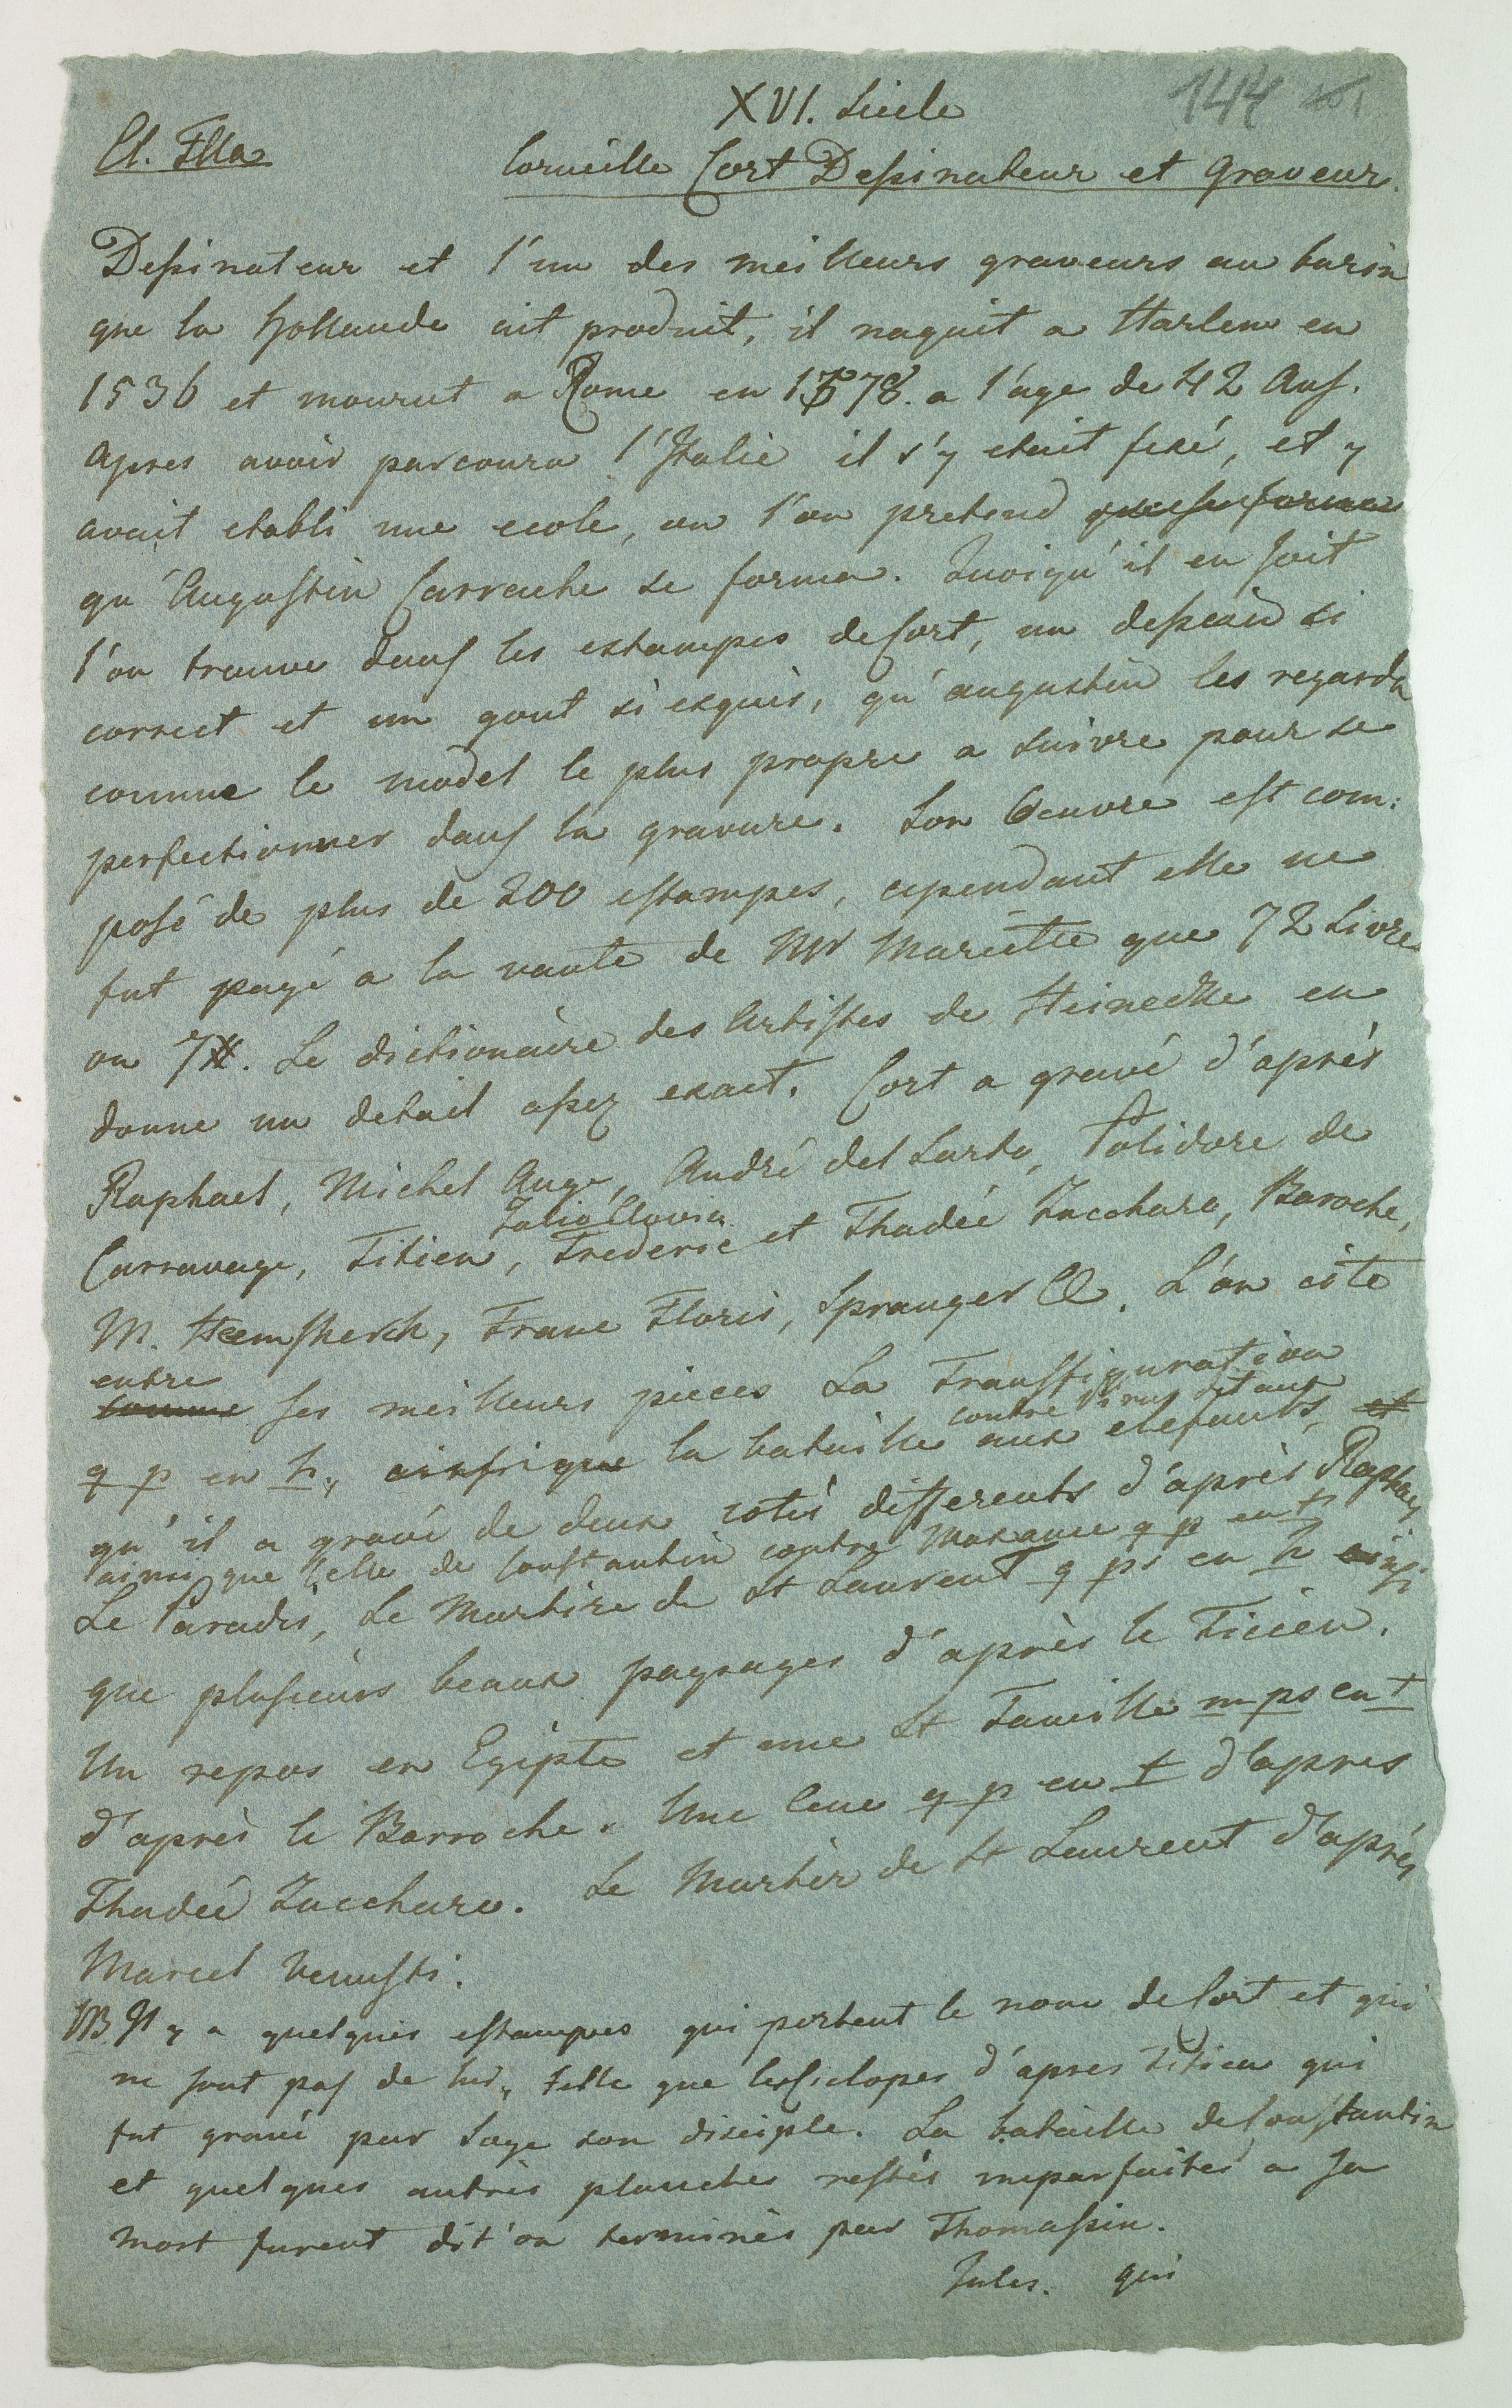 XVI. Siecle
144
Cl. IIIa
Corneille Cort Dessinateur et Graveur.
Dessinateur et l'un des meilleurs graveurs au burin
que la Hollande ait produit, il naquit a Harlem en
1536 et mourut a Rome en 1578. a l'age de 42 Ans.
Apres avoir parcouru l'Italie il s'y etait fixé, et y
avait etabli une ecole, ou l'on pretend que se forma
qu'Augustin Carrache se forma. Quoiqu'il en soit
l'on trouve dans les estampes de Cort, un dessein si
correct et un gout si exquis, qu'augustin les regarda
comme le model le plus propre a suivre pour se
perfectionner dans la gravure. Son Oeuvre est com:
posé de plus de 200 estampes, cependant elle ne
fut payé a la vante de Mr Mariette que 72 Livres
ou 7#. Le dictionaire des Artistes de Heinecke en
donne un detail assez exact. Cort a gravé d'après
Raphael, Michel Ange, André del Sarto, Polidore de
Julio Clovia
Carravage, Titien, Frederic et Thadée Zucchara, Baroche,
M. Heemskerck, Franc Floris, Spranger &. L'on cite
entre
comme ses meilleurs pieces La Transfiguration
contre Pirus et aux
q p en h, ainsi que la bataille aux elefants, et
qu'il a gravé de deux cotés differents d'après Raphael
ainsi que celle de Constantin contre Maxance q p en t
Le Paradis, Le Martire de St Laurent q ps en h ainsi
que plusieurs beaux paysages d'après le Ticien.
Un repos en Egipte et une St Famille m ps en t
d'après le Barroche. Une Cene q p en t d'apres
Thadeé Zuccharo. Le Martir de St Laurent d'après
Marcel Venusti.
NB. Il y a quelques estampes qui portent le nom de Cort et qui
ne sont pas de lui, telle que les Ciclopes d'apres Titien qui
fut gravé par Sage son disciple. La bataille de Constantin
et quelques autres planches restés imparfaites a sa
mort furent dit'on terminés par Thomassin.
Jules. qui